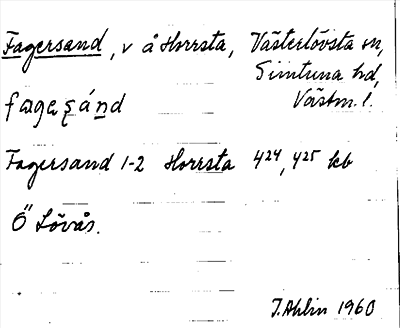 Fagersand, v å Horrsta, Västerlövsta sn,
Simtuna hd,
Västm. l.
fagaʂánd
Fagersand 1-2 Horrsta 424, 425 kb
Ö Lövås.
J. Ahlin 1960